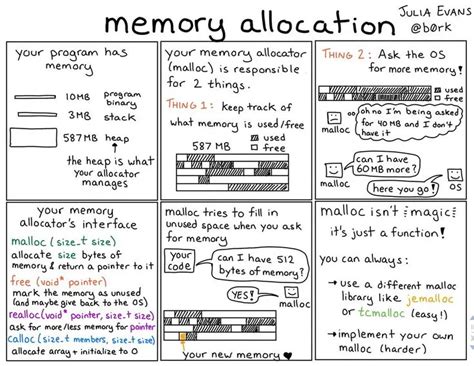 memory allocation
JULIA EVANS
@b0rk
your program has
memory
10MB program
binary
3MB stack
587MB heap
the heap is what
your allocator
manages
your memory allocator
(malloc) is responsible
for 2 things.
THING 1: keep track of
what memory is used/free
587 MB
used
free
THING 2: Ask the OS
for more memory!
used
free
oh no I'm being asked
for 40 MB and I don't
have it
malloc
can I have
60 MB more?
malloc
here you go!
OS
your memory
allocator's interface
malloc (size_t size)
allocate size bytes of
memory & return a pointer to it
free (void* pointer)
mark the memory as unused
(and maybe give back to the OS)
realloc(void* pointer, size_t size)
ask for more/less memory for pointer
calloc (size_t members, size_t size)
allocate array + initialize to 0
malloc tries to fill in
unused space when you ask
for memory
your
code
can I have 512
bytes of memory?
YES!
malloc
your new memory
malloc isn't magic
it's just a function!
you can always:
→ use a different malloc
library like jemalloc
or tcmalloc (easy!)
→ implement your own
malloc (harder)